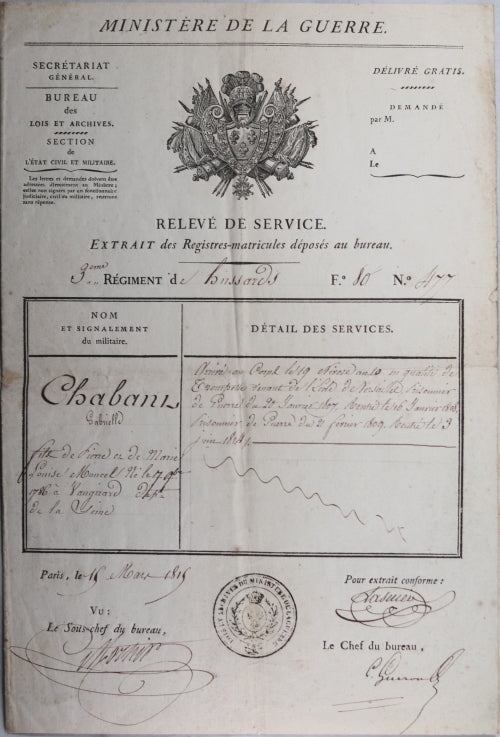 MINISTÈRE DE LA GUERRE.
SECRÉTARIAT
GÉNÉRAL.
BUREAU
des
LOIS ET ARCHIVES.
SECTION
de
L'ÉTAT CIVIL ET MILITAIRE.
Les lettres et demandes doivent être
adressées directement au Ministre;
celles non signées par un fonctionnaire
judiciaire, civil ou militaire, resteront
sans réponse.
DÉLIVRÉ GRATIS.
DEMANDÉ
par M.
A
Le
RELEVÉ DE SERVICE.
EXTRAIT des Registres-matricules déposés au bureau.
3eme RÉGIMENT de hussards F.° 80 N.° 477
NOM
ET SIGNALEMENT
du militaire.
Chabant
Gabrielle
fils de Pierre et de Marie
Louise Moncel Né le 17
à Vaugirard Dépt
de la Seine
DÉTAIL DES SERVICES.
Arrivé au Corps le 19 Nivose an 10 en qualité de
Trompette venant de l'École de Versailles, prisonnier
de Guerre du 27 Janvier 1807, Rentré le 16 Janvier 1808,
prisonnier de Guerre du 21 février 1809. Rentré le 3
juin 1814
Paris, le 15 Mars 1815
VU:
Le Sous-chef du bureau,
Pour extrait conforme:
Le Chef du bureau,